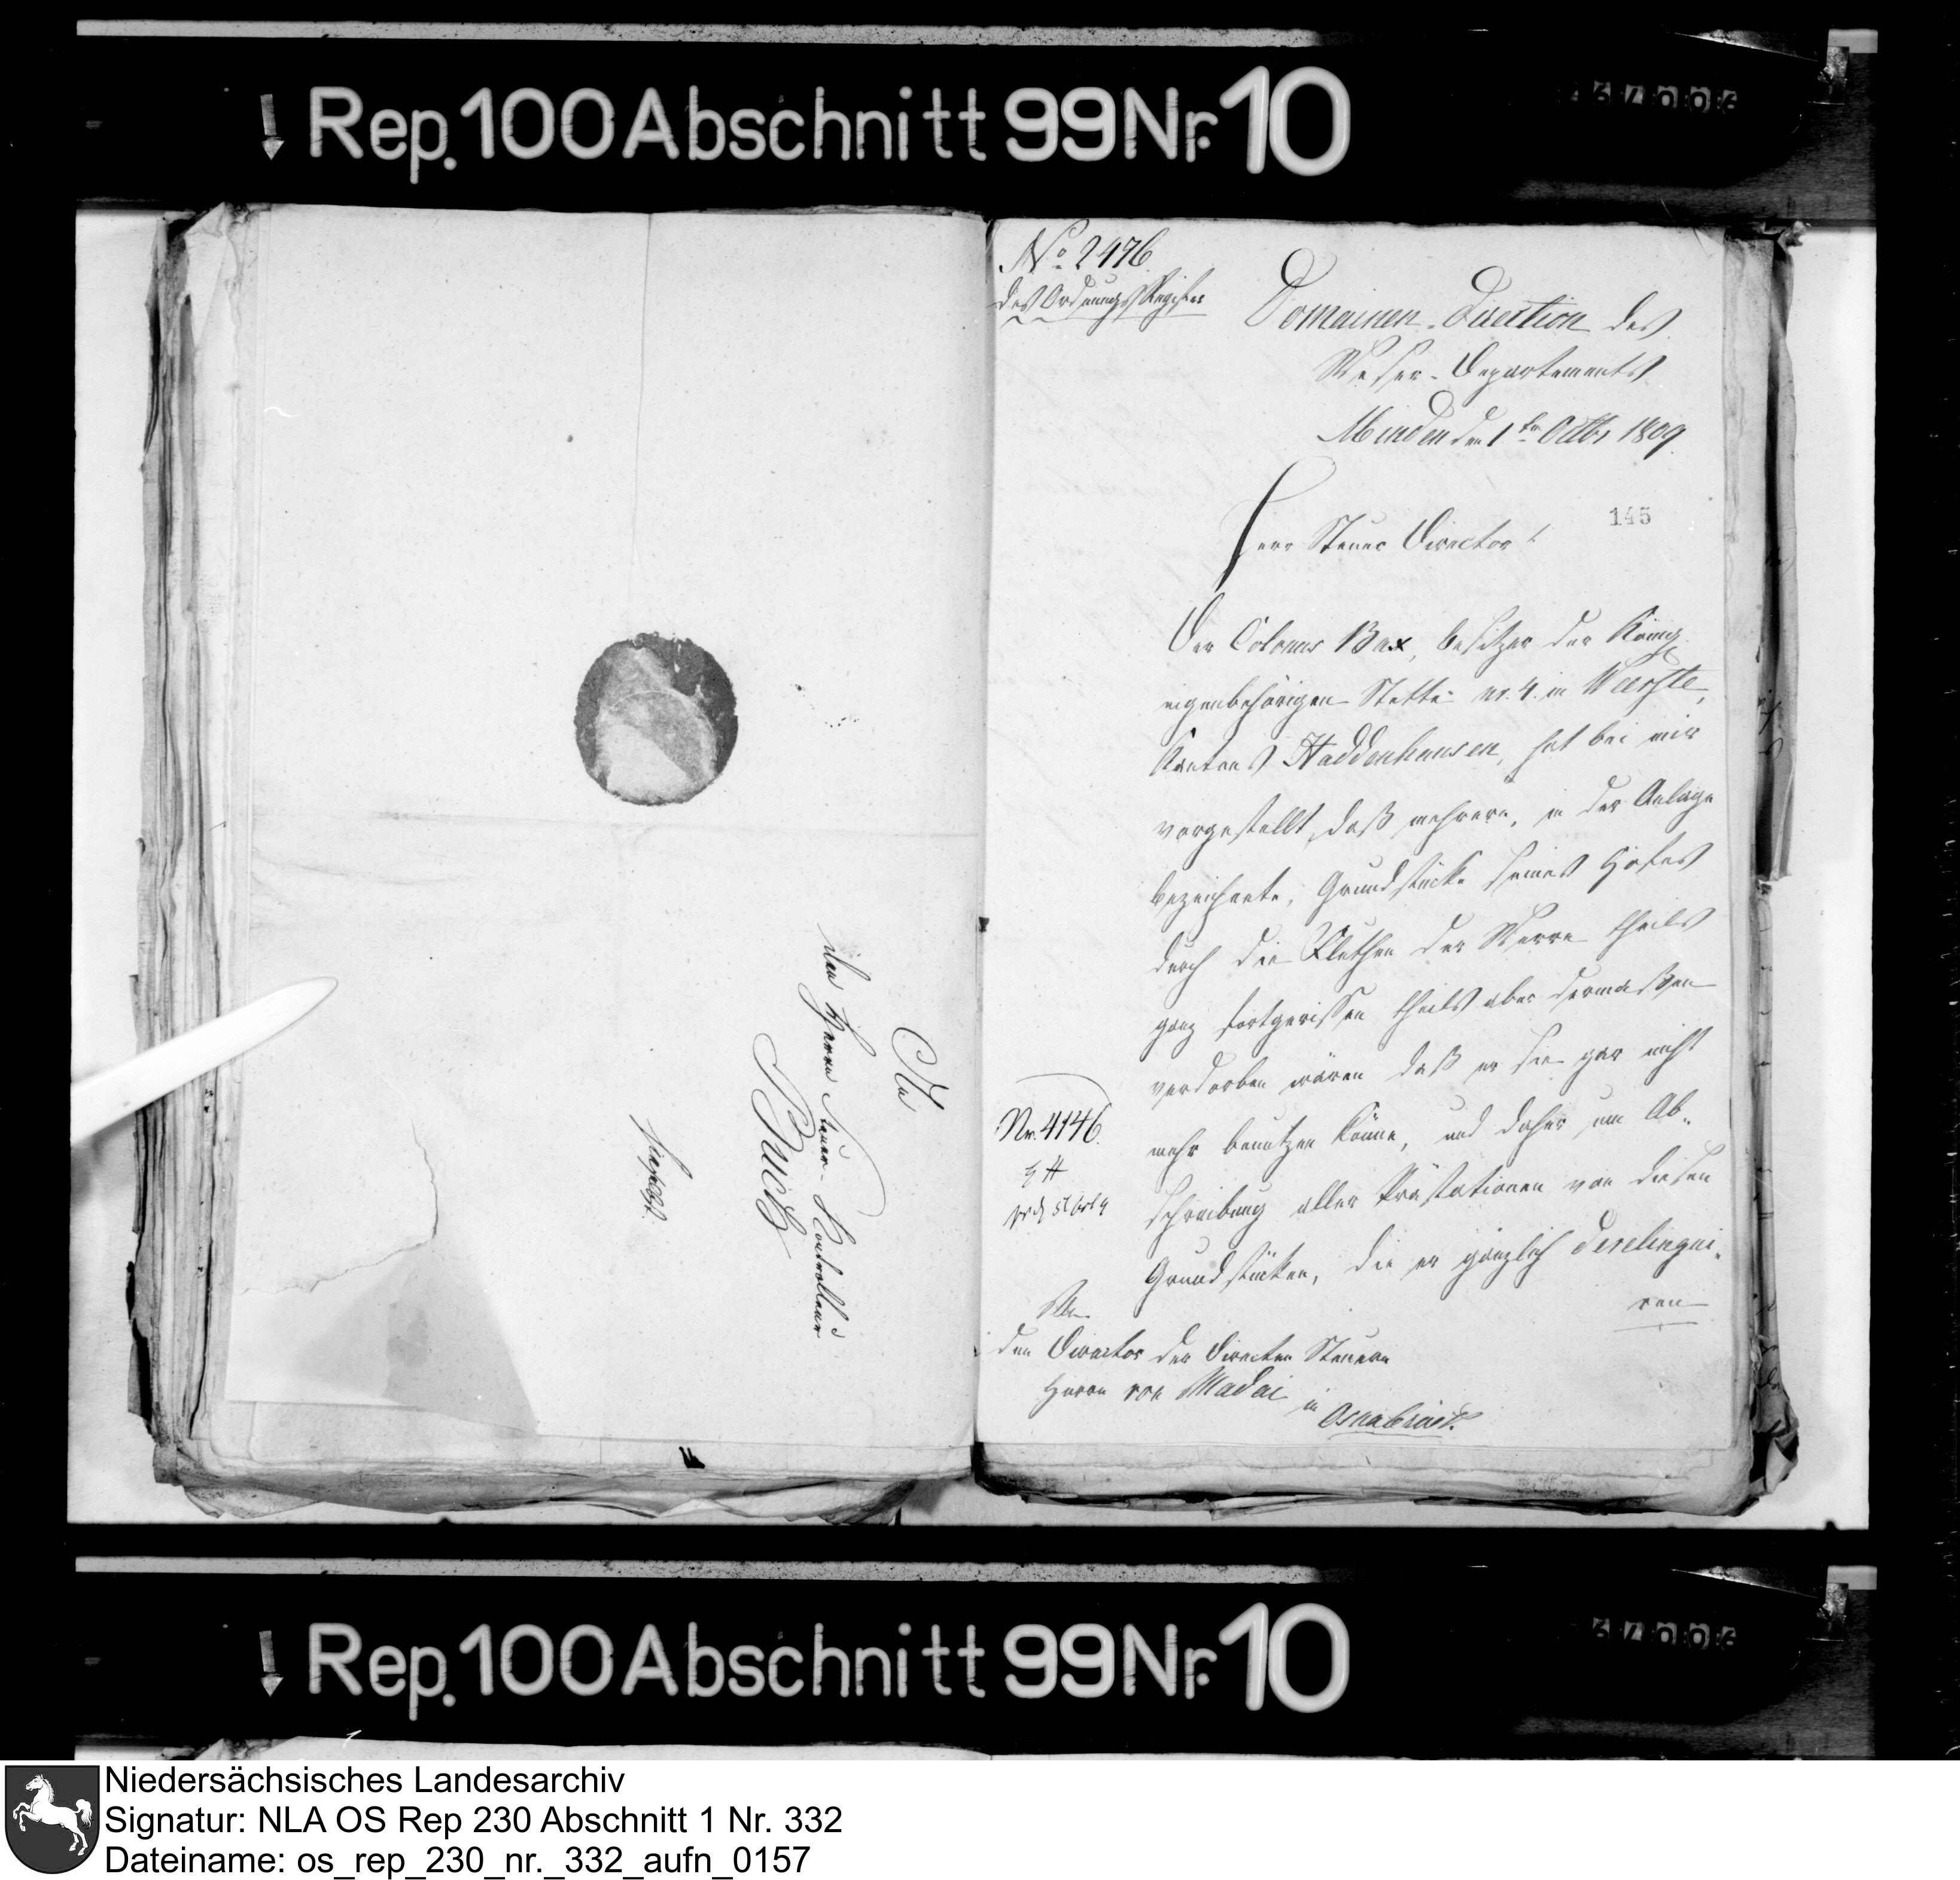 Rep. 100 Abschnitt 99 Nr. 10
An
den Herrn Steuer-Controlleur
hieselbst
No 2476.
des Ordnungs Register
Domainen-Direction des
Weser-Departements
Minden den 1ten Octbr 1809.
145
Herr Steuer Director!
Der Colonus Bax, Besitzer der Königl.
eigenbehörigen Stette nr. 4. in Weerste,
Kantons Haddenhausen, hat bei mir
vorgestellt, daß mehrere, in der Anlage
bezeichnete, Grundstücke seines Hofes
durch die Fluthen der Werre theils
ganz fortgerissen theils aber dermaßen
verdorben wären daß er sie gar nicht
mehr benutzen könne, und daher um Ab-
schreibung aller Prästationen von diesen
Grundstücken, die er gänzlich derelinqui-
ren
Nr. 4146.
An
den Director der directen Steuern
Herrn von Madai in
Osnabrück.
Rep. 100 Abschnitt 99 Nr. 10
Niedersächsisches Landesarchiv
Signatur: NLA OS Rep 230 Abschnitt 1 Nr. 332
Dateiname: os_rep_230_nr._332_aufn_0157